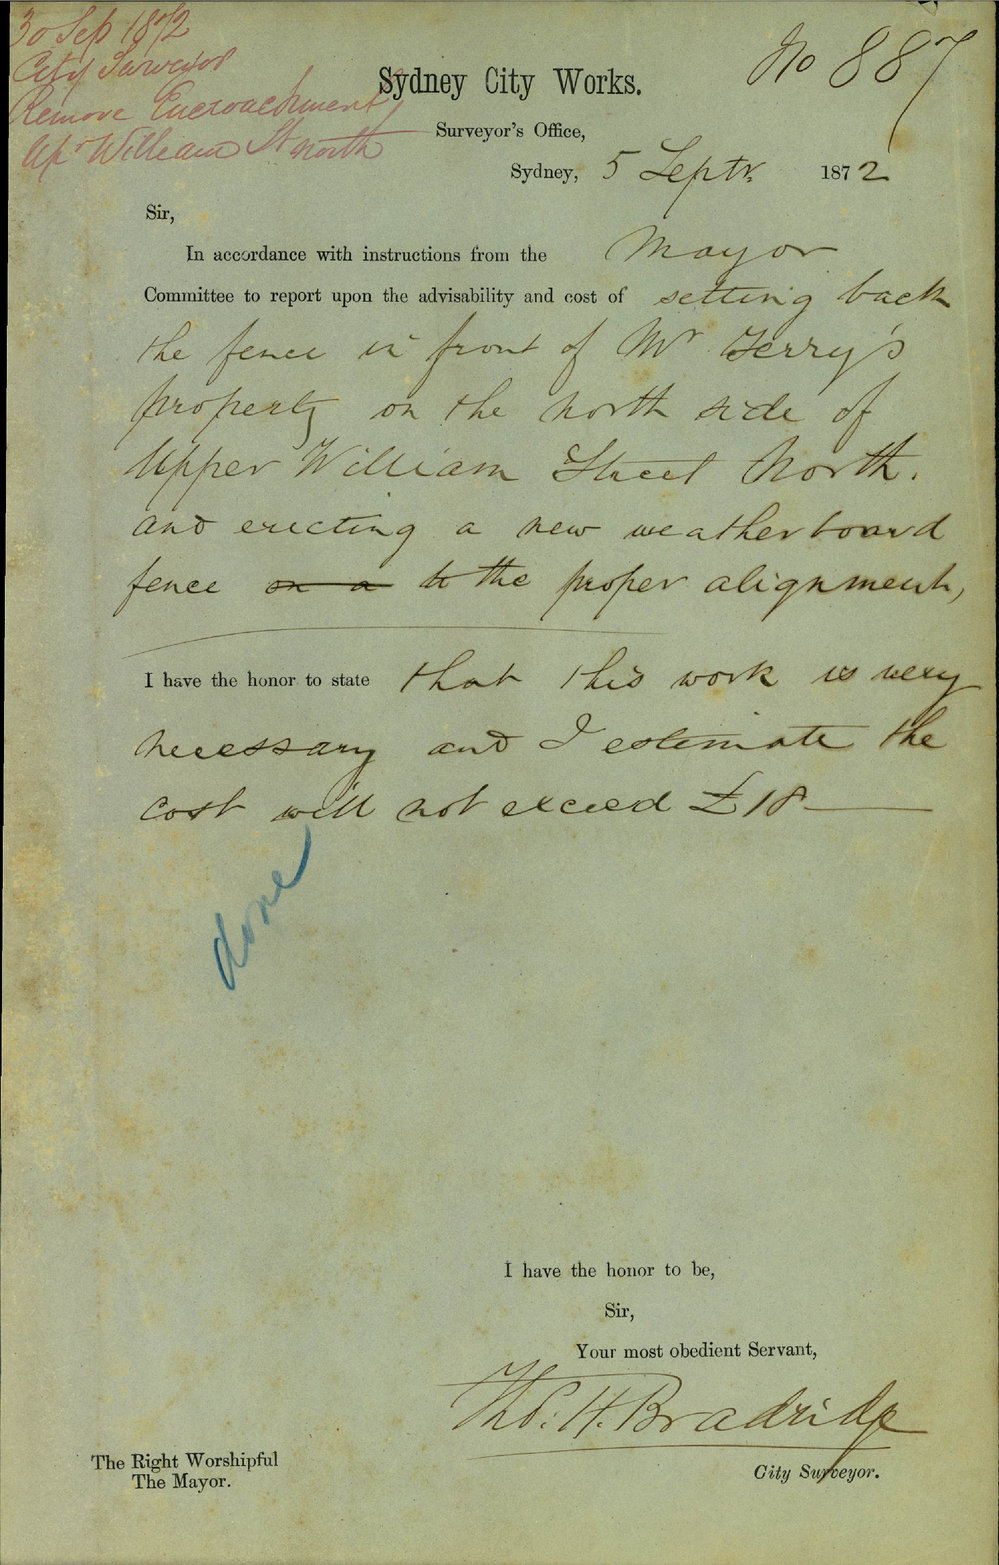 30 Sep 1872
City Surveyor
Remove Encroachment
Upr William St north
No 887
Sydney City Works.
Surveyor's Office,
Sydney, 5 Septr. 1872
Sir,
In accordance with instructions from the Mayor
Committee to report upon the advisability and cost of setting back
the fence in front of Mr Terry's
property on the north side of
Upper William Street North.
and erecting a new weatherboard
fence on a to the proper alignment,
I have the honor to state that this work is very
necessary and I estimate the
cost will not exceed £18
done
I have the honor to be,
Sir,
Your most obedient Servant,
Tho. H. Bradridge
City Surveyor.
The Right Worshipful
The Mayor.